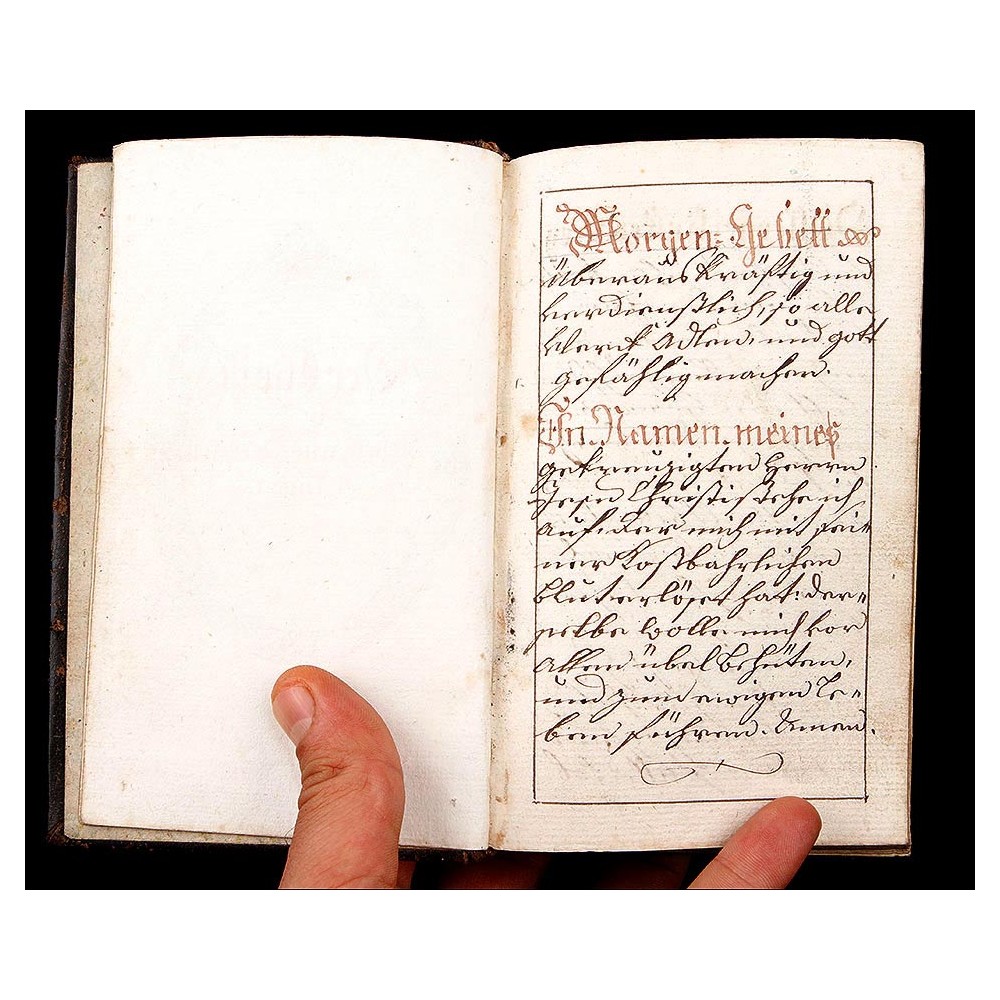 Morgen-Gebett
Überaus Kräftig und
verdienstlich, so alle
Werck Adlen, und gott
gefählig machen.
In Namen meines
gekreuzigten Herrn
Jesu Christi stehe ich
auf, der mich mit sei-
ner Kostbahrlichen
Blut erlöset hat: der-
selbe wolle mich vor
allem übel behüten,
und zum ewigen Le-
ben führen. Amen.